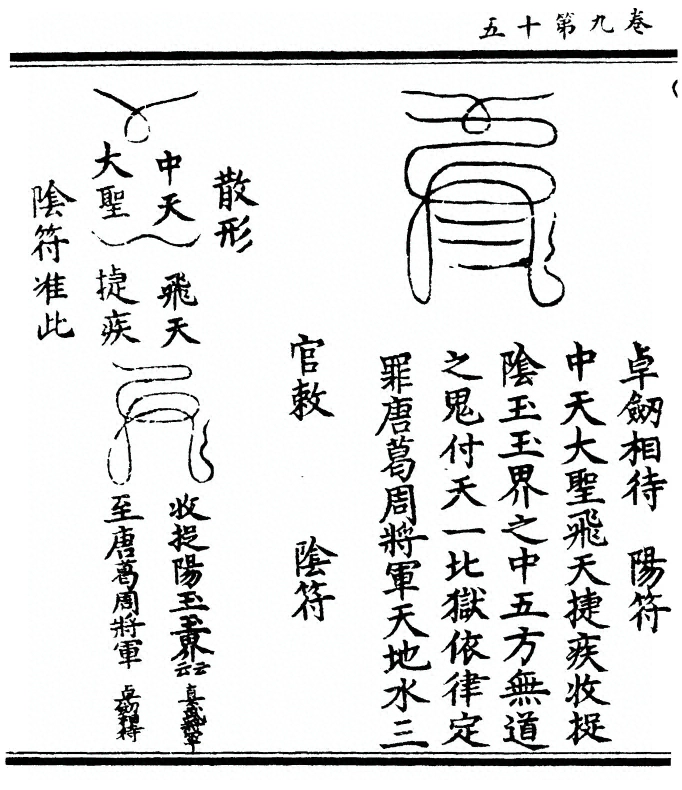 卷九第十五
卓劒相待　陽符
中天大聖飛天捷疾收捉
陰玉玉界之中五方無道
之鬼付天一比獄依律定
罪唐葛周將軍天地水三
官敕　陰符
散形
中天　飛天　收捉陽玉玉界云云
大聖　捷疾　至唐葛周將軍　卓劒相待
陰符准此